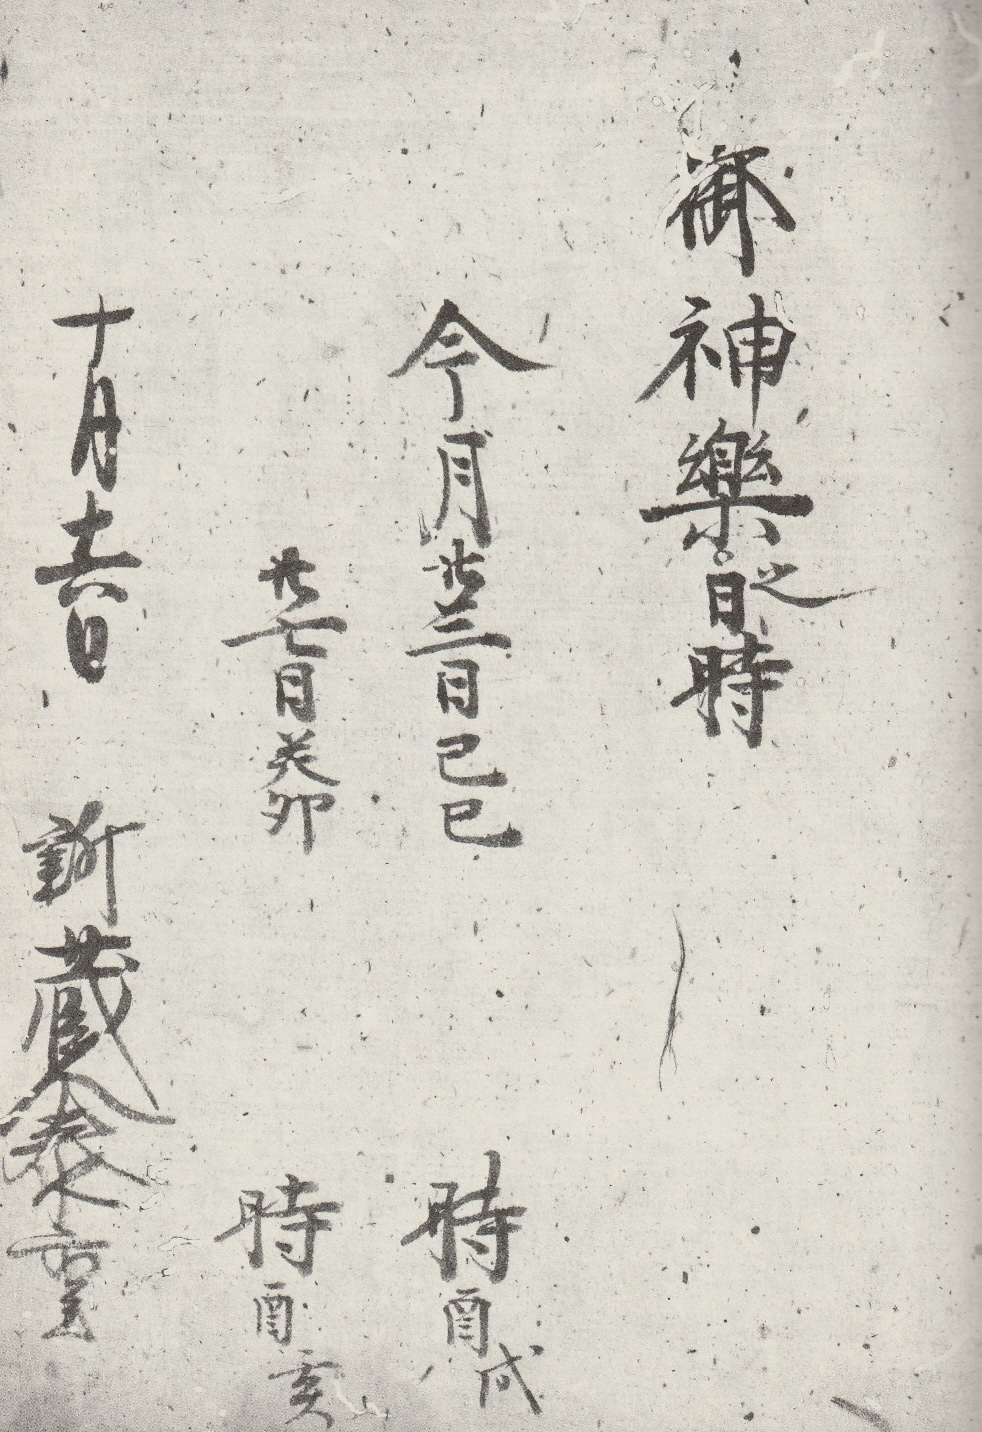 御神樂之日時
今月廿三日己巳 時酉戌
廿七日癸卯 時酉亥
十月十六日 新蔵人泰